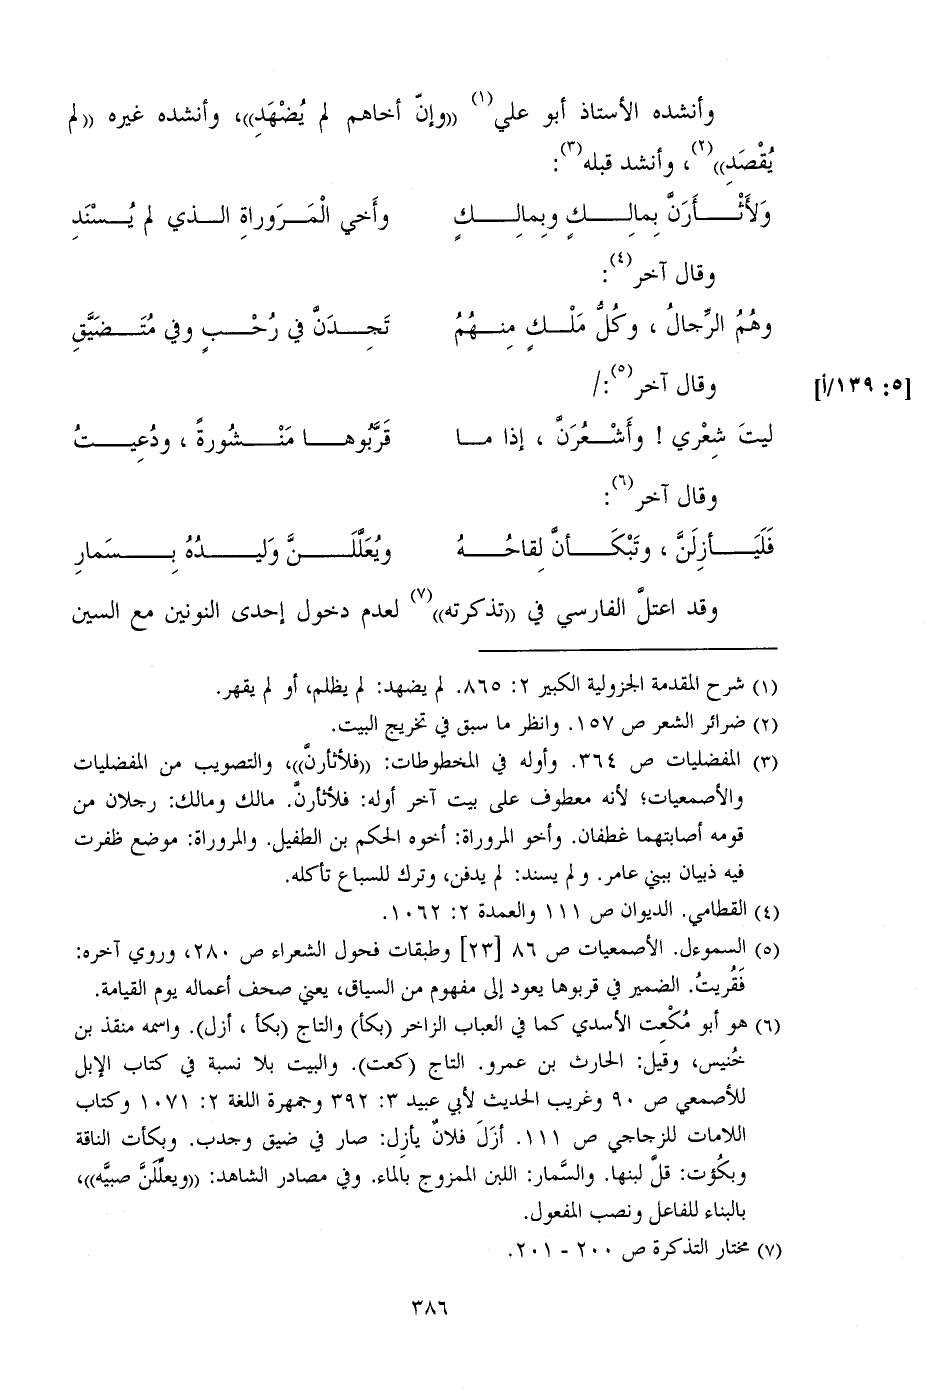 وأنشده الأستاذ أبو علي(١) ((وإنّ أخاهم لم يُضْهَدِ))، وأنشده غيره ((لم
يُقْصَدِ))(٢)، وأنشد قبله(٣):
وَلَأَثْــأَرَنَّ بمالِــكٍ وبمالِــكٍ    وأَخي الْمَرَوْراةِ الــذي لم يُــسْنَدِ
وقال آخر(٤):
وهُمُ الرِّجالُ ، وكُلُّ مَلْـكٍ مِنـهُمُ    تَجِــدَنَّ في رُحْــبٍ وفي مُتَــضَيَّقِ
[٥: ١٣٩/أ] وقال آخر(٥):/
ليتَ شِعْري ! وأَشْـعُرَنَّ ، إذا مـا    قَرَّبُوهــا مَنْــشُورةً ، ودُعِيــتُ
وقال آخر(٦):
فَلَيَــأزِلَنَّ ، وتَبْكَــأنَّ لِقاحُــهُ    ويُعَلَّلَــنَّ وَليــدُهُ بِــسَمارِ
وقد اعتلَّ الفارسي في ((تذكرته))(٧) لعدم دخول إحدى النونين مع السين
(١) شرح المقدمة الجزولية الكبير ٢: ٨٦٥. لم يضهد: لم يظلم، أو لم يقهر.
(٢) ضرائر الشعر ص ١٥٧. وانظر ما سبق في تخريج البيت.
(٣) المفضليات ص ٣٦٤. وأوله في المخطوطات: ((فلأثأرنَّ))، والتصويب من المفضليات
والأصمعيات؛ لأنه معطوف على بيت آخر أوله: فلأثأرنّ. مالك ومالك: رجلان من
قومه أصابتهما غطفان. وأخو المروراة: أخوه الحكم بن الطفيل. والمروراة: موضع ظفرت
فيه ذبيان ببني عامر. ولم يسند: لم يدفن، وترك للسباع تأكله.
(٤) القطامي. الديوان ص ١١١ والعمدة ٢: ١٠٦٢.
(٥) السموءل. الأصمعيات ص ٨٦ [٢٣] وطبقات فحول الشعراء ص ٢٨٠، وروي آخره:
فَقُرِيتُ. الضمير في قربوها يعود إلى مفهوم من السياق، يعني صحف أعماله يوم القيامة.
(٦) هو أبو مُكْعِت الأسدي كما في العباب الزاخر (بكأ) والتاج (بكأ ، أزل). واسمه منقذ بن
خُنيس، وقيل: الحارث بن عمرو. التاج (كعت). والبيت بلا نسبة في كتاب الإبل
للأصمعي ص ٩٠ وغريب الحديث لأبي عبيد ٣: ٣٩٢ وجمهرة اللغة ٢: ١٠٧١ وكتاب
اللامات للزجاجي ص ١١١. أزَلَ فلانٌ يأزِل: صار في ضيق وجدب. وبكأت الناقة
وبكُؤت: قلَّ لبنها. والسَّمار: اللبن الممزوج بالماء. وفي مصادر الشاهد: ((ويعلِّلَنَّ صبيَّه))،
بالبناء للفاعل ونصب المفعول.
(٧) مختار التذكرة ص ٢٠٠ - ٢٠١.
٣٨٦